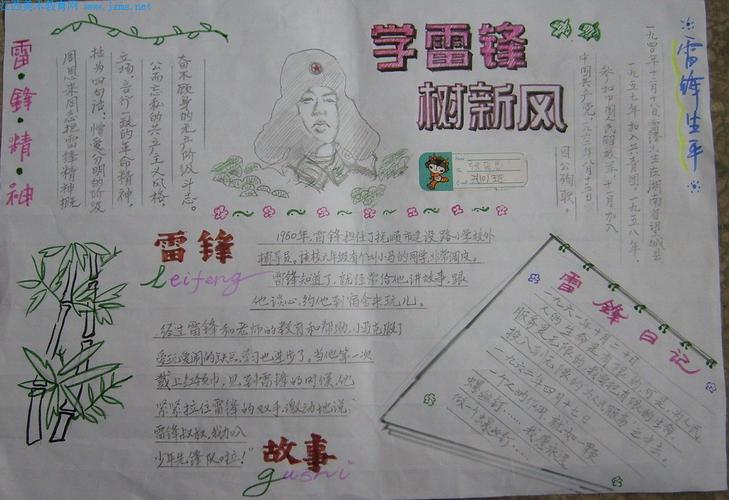 江西美术教育网 www.jxms.net
学雷锋
树新风
雷·锋·精·神
周恩来同志把雷锋精神概
括为四句话：憎爱分明的阶级
立场、言行一致的革命精神、
公而忘私的共产主义风格、
奋不顾身的无产阶级斗志。
雷锋生平
一九四〇年十二月十八日雷锋出生在湖南省望城县
一九五七年加入共青团。一九五八年
参加中国人民解放军
中国共产党。一九六二年八月十五日
因公殉职。
雷锋
leifeng
1960年，雷锋担任了抚顺市建设路小学校外
辅导员。该校六年级有个叫小马的同学，非常调皮。
雷锋知道了，就经常给他讲故事，跟
他谈心，约他到宿舍来玩儿。
经过雷锋和老师的教育和帮助，小马克服了
爱玩爱闹的缺点，学习也进步了。当他第一次
戴上红领巾，见到雷锋的时候，他
紧紧拉住雷锋的双手，激动地说：
雷锋叔叔，我加入
少年先锋队啦！"
故事
gushi
雷锋日记
一九六一年十月
人的生命是有限的，可是，为人民
服务是无限的，我要把有限的生命，
投入到无限的为人民服务之中去。
一九六二年四月
一个人的作用
螺丝钉